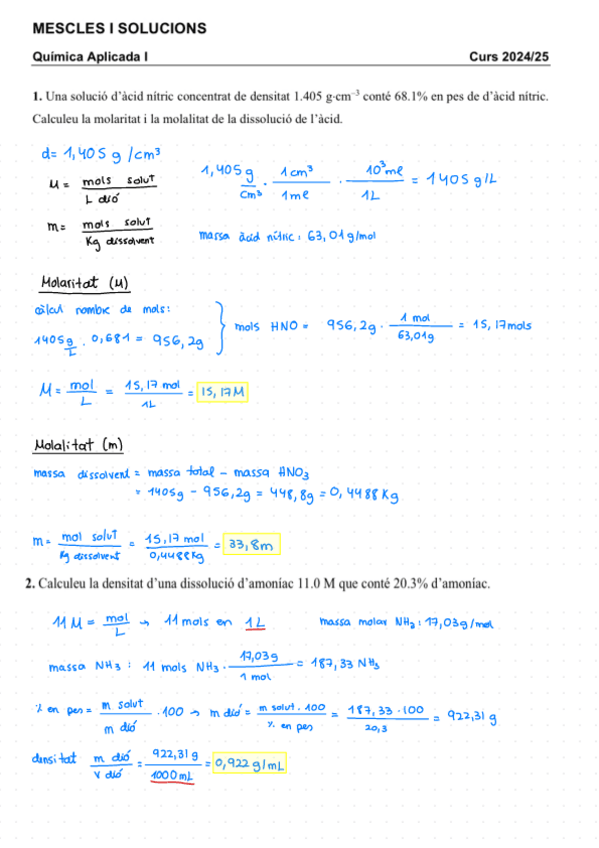 MESCLES I SOLUCIONS
Química Aplicada I Curs 2024/25
1. Una solució d'àcid nítric concentrat de densitat 1.405 g·cm⁻³ conté 68.1% en pes de d'àcid nítric.
Calculeu la molaritat i la molalitat de la dissolució de l'àcid.
d= 1,405 g/cm³
M = mols solut / L dió
1,405 g/cm³ · 1 cm³/1 mL · 10³ mL/1L = 1405 g/L
m = mols solut / Kg dissolvent
massa àcid nítric: 63,01 g/mol
Molaritat (M)
càlcul nombre de mols:
1405 g/L · 0,681 = 956,2g
mols HNO = 956,2g · 1 mol/63,01g = 15,17mols
M = mol/L = 15,17 mol/1L = 15,17M
Molalitat (m)
massa dissolvent = massa total - massa HNO₃
= 1405g - 956,2g = 448,8g = 0,4488 Kg
m = mol solut/Kg dissolvent = 15,17 mol/0,4488Kg = 33,8m
2. Calculeu la densitat d'una dissolució d'amoníac 11.0 M que conté 20.3% d'amoníac.
11 M = mol/L → 11 mols en 1L massa molar NH₃: 17,03g/mol
massa NH₃: 11 mols NH₃ · 17,03g/1 mol = 187,33 NH₃
% en pes = m solut/m dió · 100 → m dió = m solut · 100/% en pes = 187,33 · 100/20,3 = 922,31 g
densitat m dió/V dió = 922,31 g/1000 mL = 0,922 g/mL